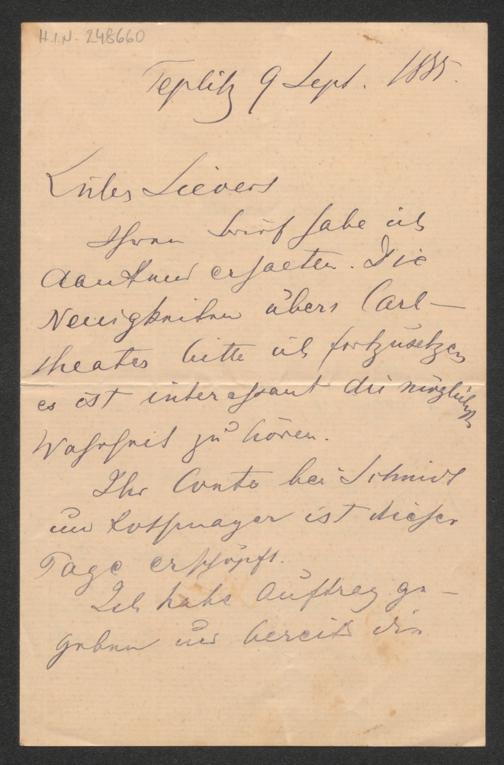 H.I.N. 248660
Teplitz 9 Sept. 1885.
Liebes Sievers
Ihren Brief habe ich
dankend erhalten. Die
Neuigkeiten übers Carl-
theater bitte ich fortzusetzen
es ist interessant die möglichste
Wahrheit zu hören.
Ihr Conto bei Schmidt
und ist dieser
Tage erschöpft.
Ich habe Auftrag ge-
geben und bereits die